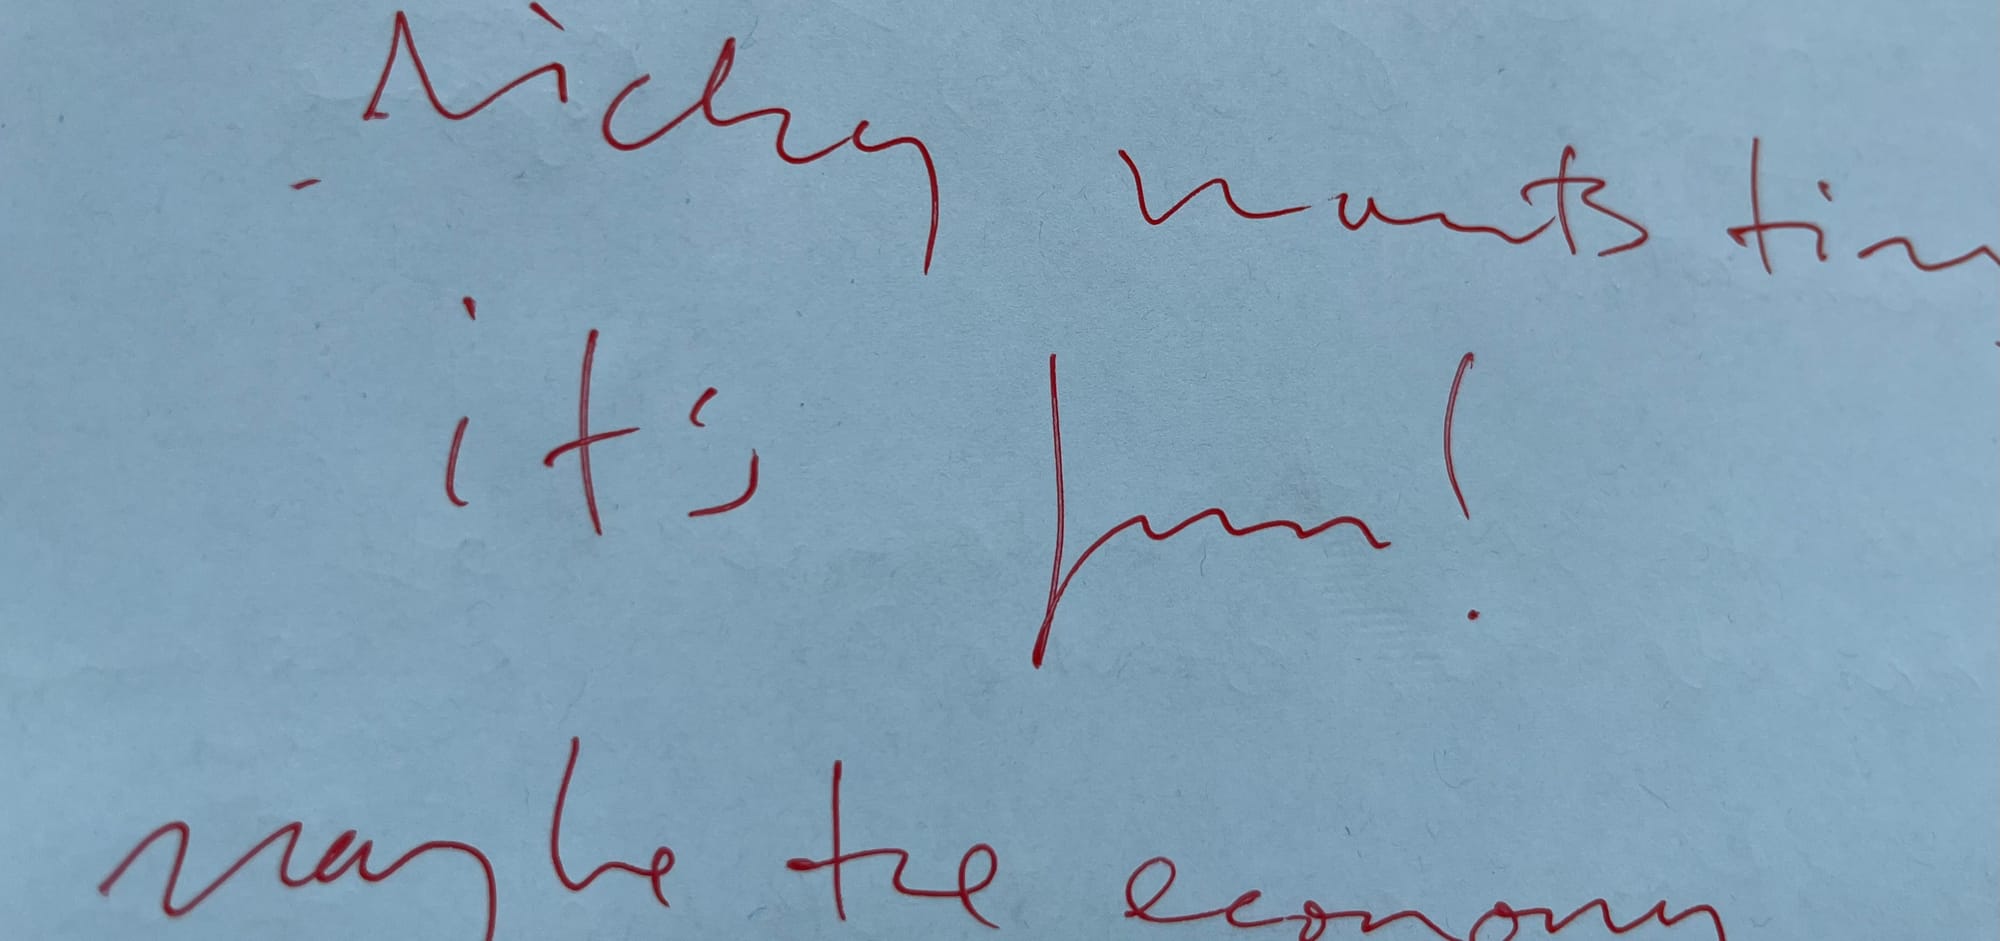 - Nicky wants
it's fun!
maybe the economy